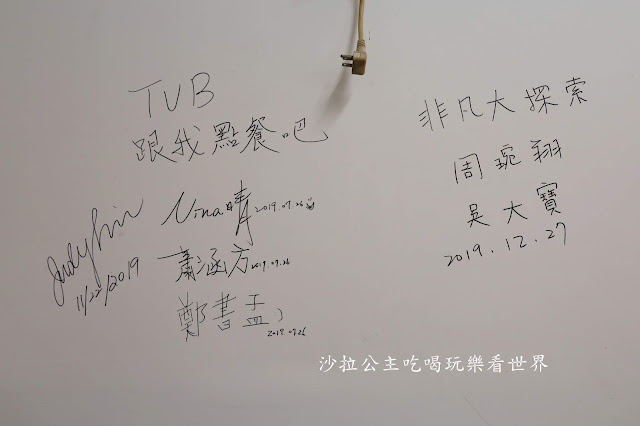 TVB
跟我點餐吧
Nina晴 2019.07.26
蕭涵方 2019.07.26
鄭書孟 2019.07.26
11/22/2019
非凡大探索
周琬翔
吳大寶
2019.12.27
沙拉公主吃喝玩樂看世界